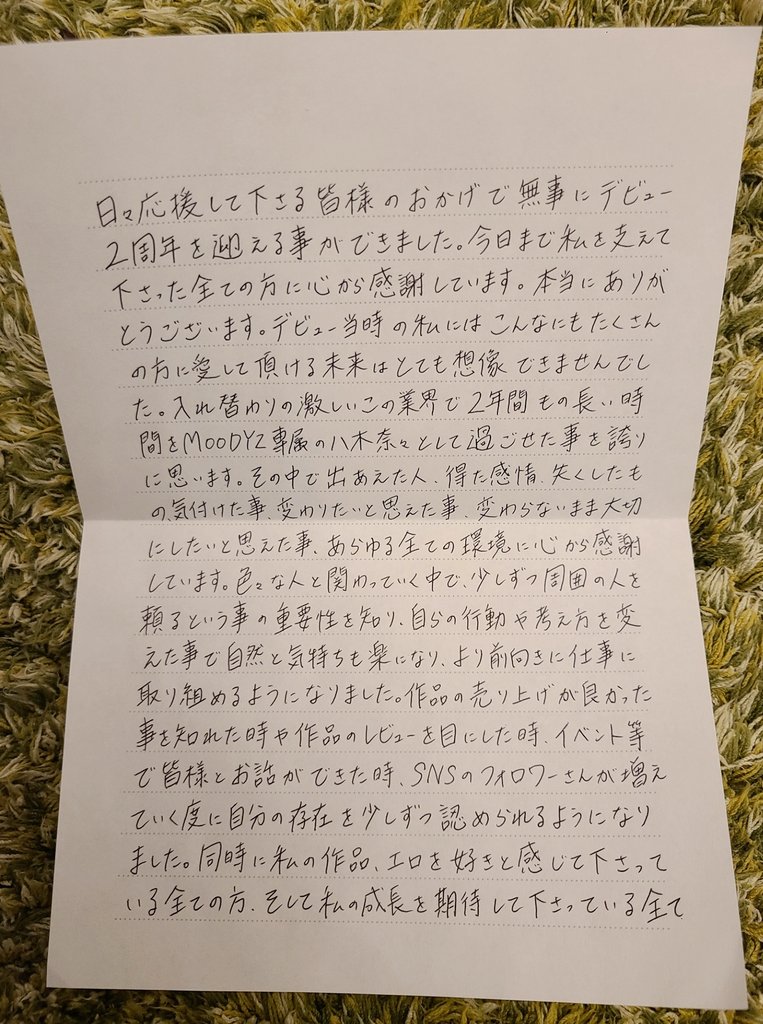 日々応援して下さる皆様のおかげで無事にデビュー
2周年を迎える事ができました。今日まで私を支えて
下さった全ての方に心から感謝しています。本当にありが
とうございます。デビュー当時の私にはこんなにもたくさん
の方に愛して頂ける未来はとても想像できませんでし
た。入れ替わりの激しいこの業界で2年間もの長い時
間をMOODYZ専属の八木奈々として過ごせた事を誇り
に思います。その中で出あえた人、得た感情、失くしたも
の、気付けた事、変わりたいと思えた事、変わらないまま大切
にしたいと思えた事、あらゆる全ての環境に心から感謝
しています。色々な人と関わっていく中で、少しずつ周囲の人を
頼るという事の重要性を知り、自らの行動や考え方を変
えた事で自然と気持ちも楽になり、より前向きに仕事に
取り組めるようになりました。作品の売り上げが良かった
事を知れた時や作品のレビューを目にした時、イベント等
で皆様とお話ができた時、SNSのフォロワーさんが増え
ていく度に自分の存在を少しずつ認められるようになり
ました。同時に私の作品、エロを好きと感じて下さって
いる全ての方、そして私の成長を期待して下さっている全て